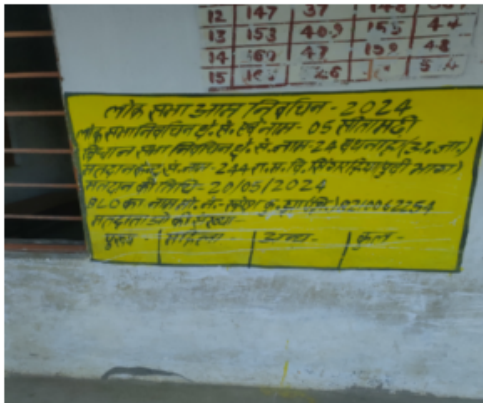 12 147 37 148
13 153 40.9 155 44
14 160 47 159 48
15
लोक सभा आम निर्वाचन - 2024
लोक सभा निर्वाचन क्षे. सं. एवं नाम - 05 सीतामढ़ी
विधान सभा निर्वाचन क्षे. सं. नाम - 24 बथनाहा (अ. जा.)
मतदान केन्द्र सं. नाम - 244 रा. म. वि.
मतदान की तिथि - 20/05/2024
BLO का नाम मो. नं.-
मतदाताओं की संख्या -
पुरुष - महिला - अन्य - कुल -